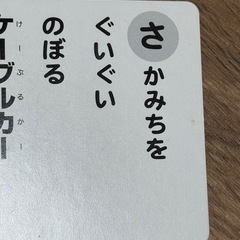 さかみちを
ぐいぐい
のぼる
ケーブルカー
けーぶるかー